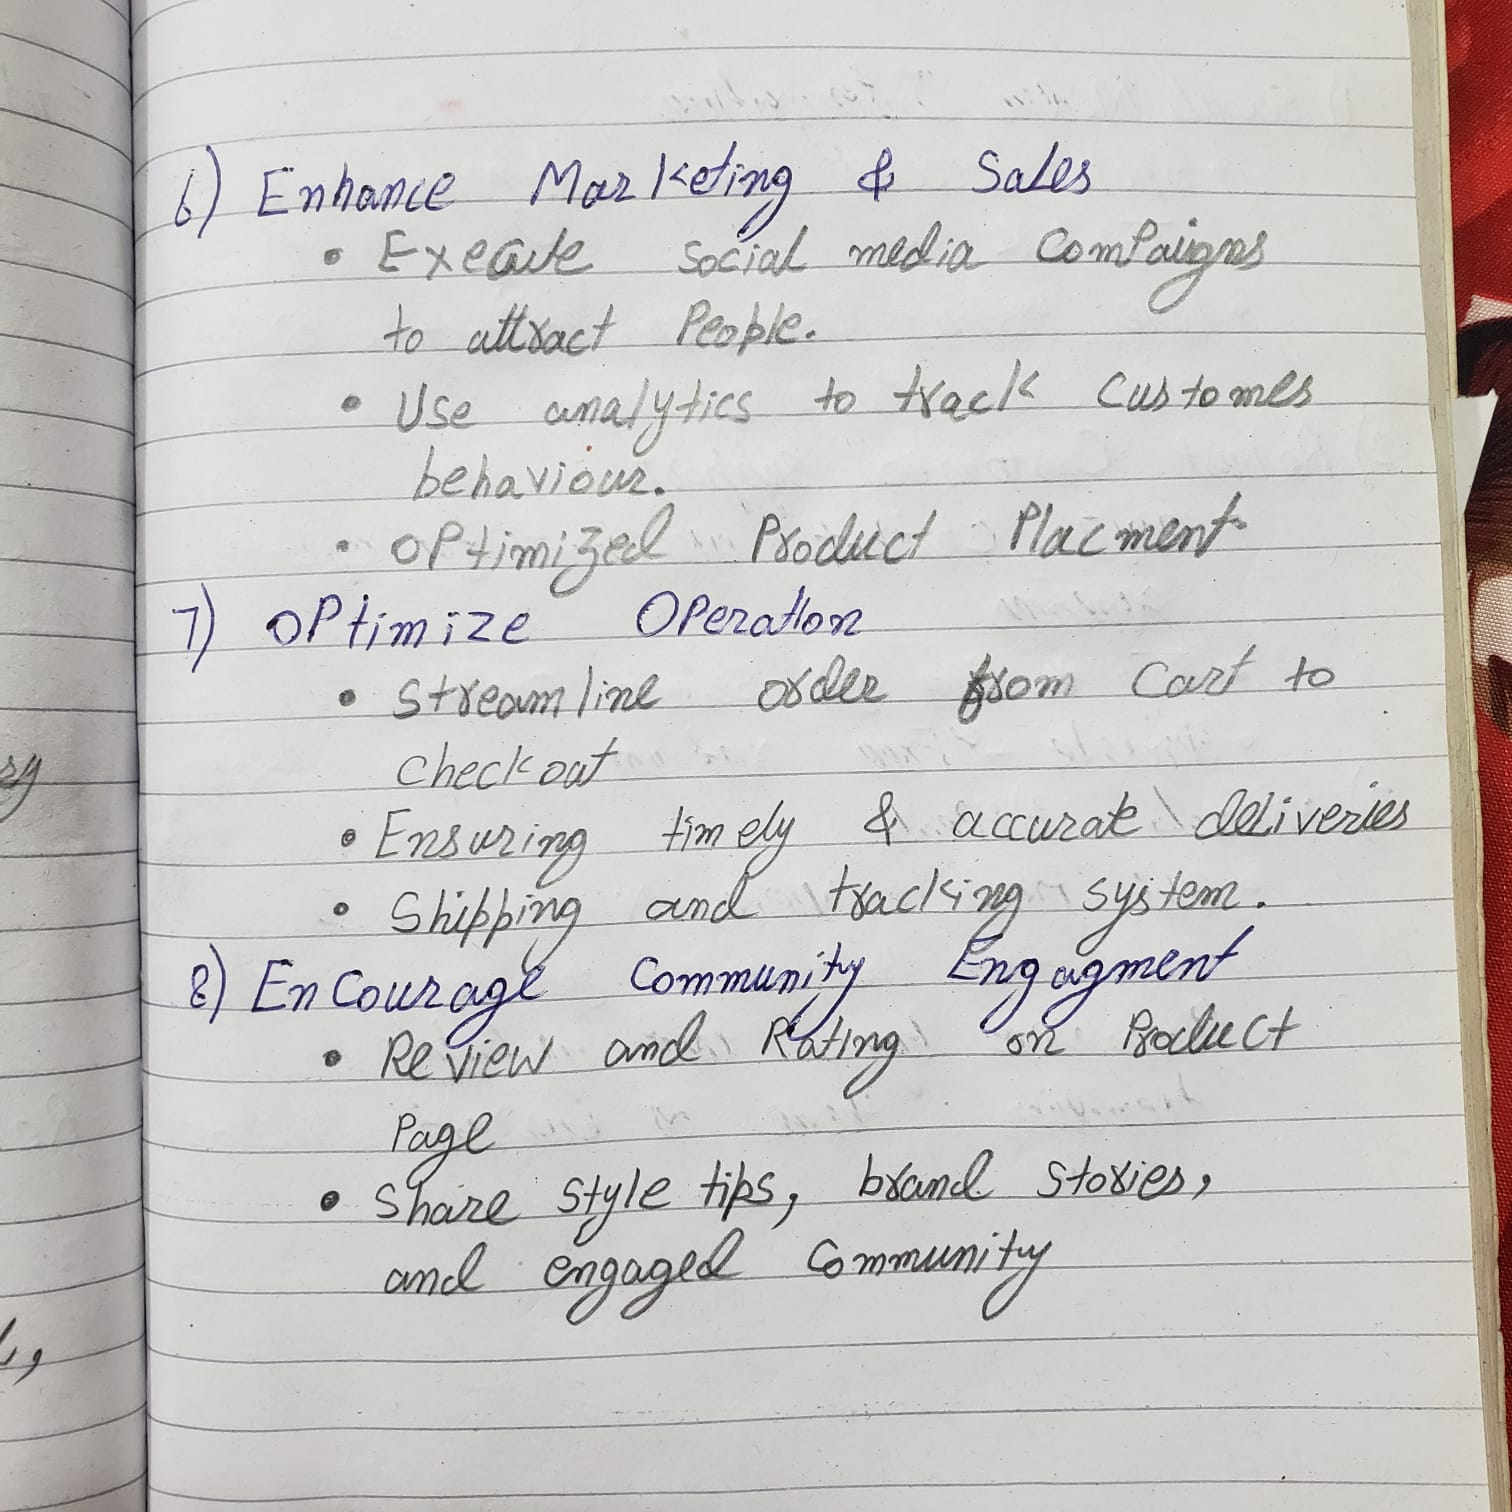 6) Enhance Marketing & Sales
• Execute Social media Compaigns
to attract People.
• Use analytics to track Customer
behaviour.
• OPtimized Product Placment
7) OPtimize Operation
• Streamline order from Cart to
checkout
• Ensuring timely & accurate deliveries
• Shipping and tracking system.
8) Encourage Community Engagment
• Review and Rating on Product
Page
• Share Style tips, brand Stories,
and engaged Community